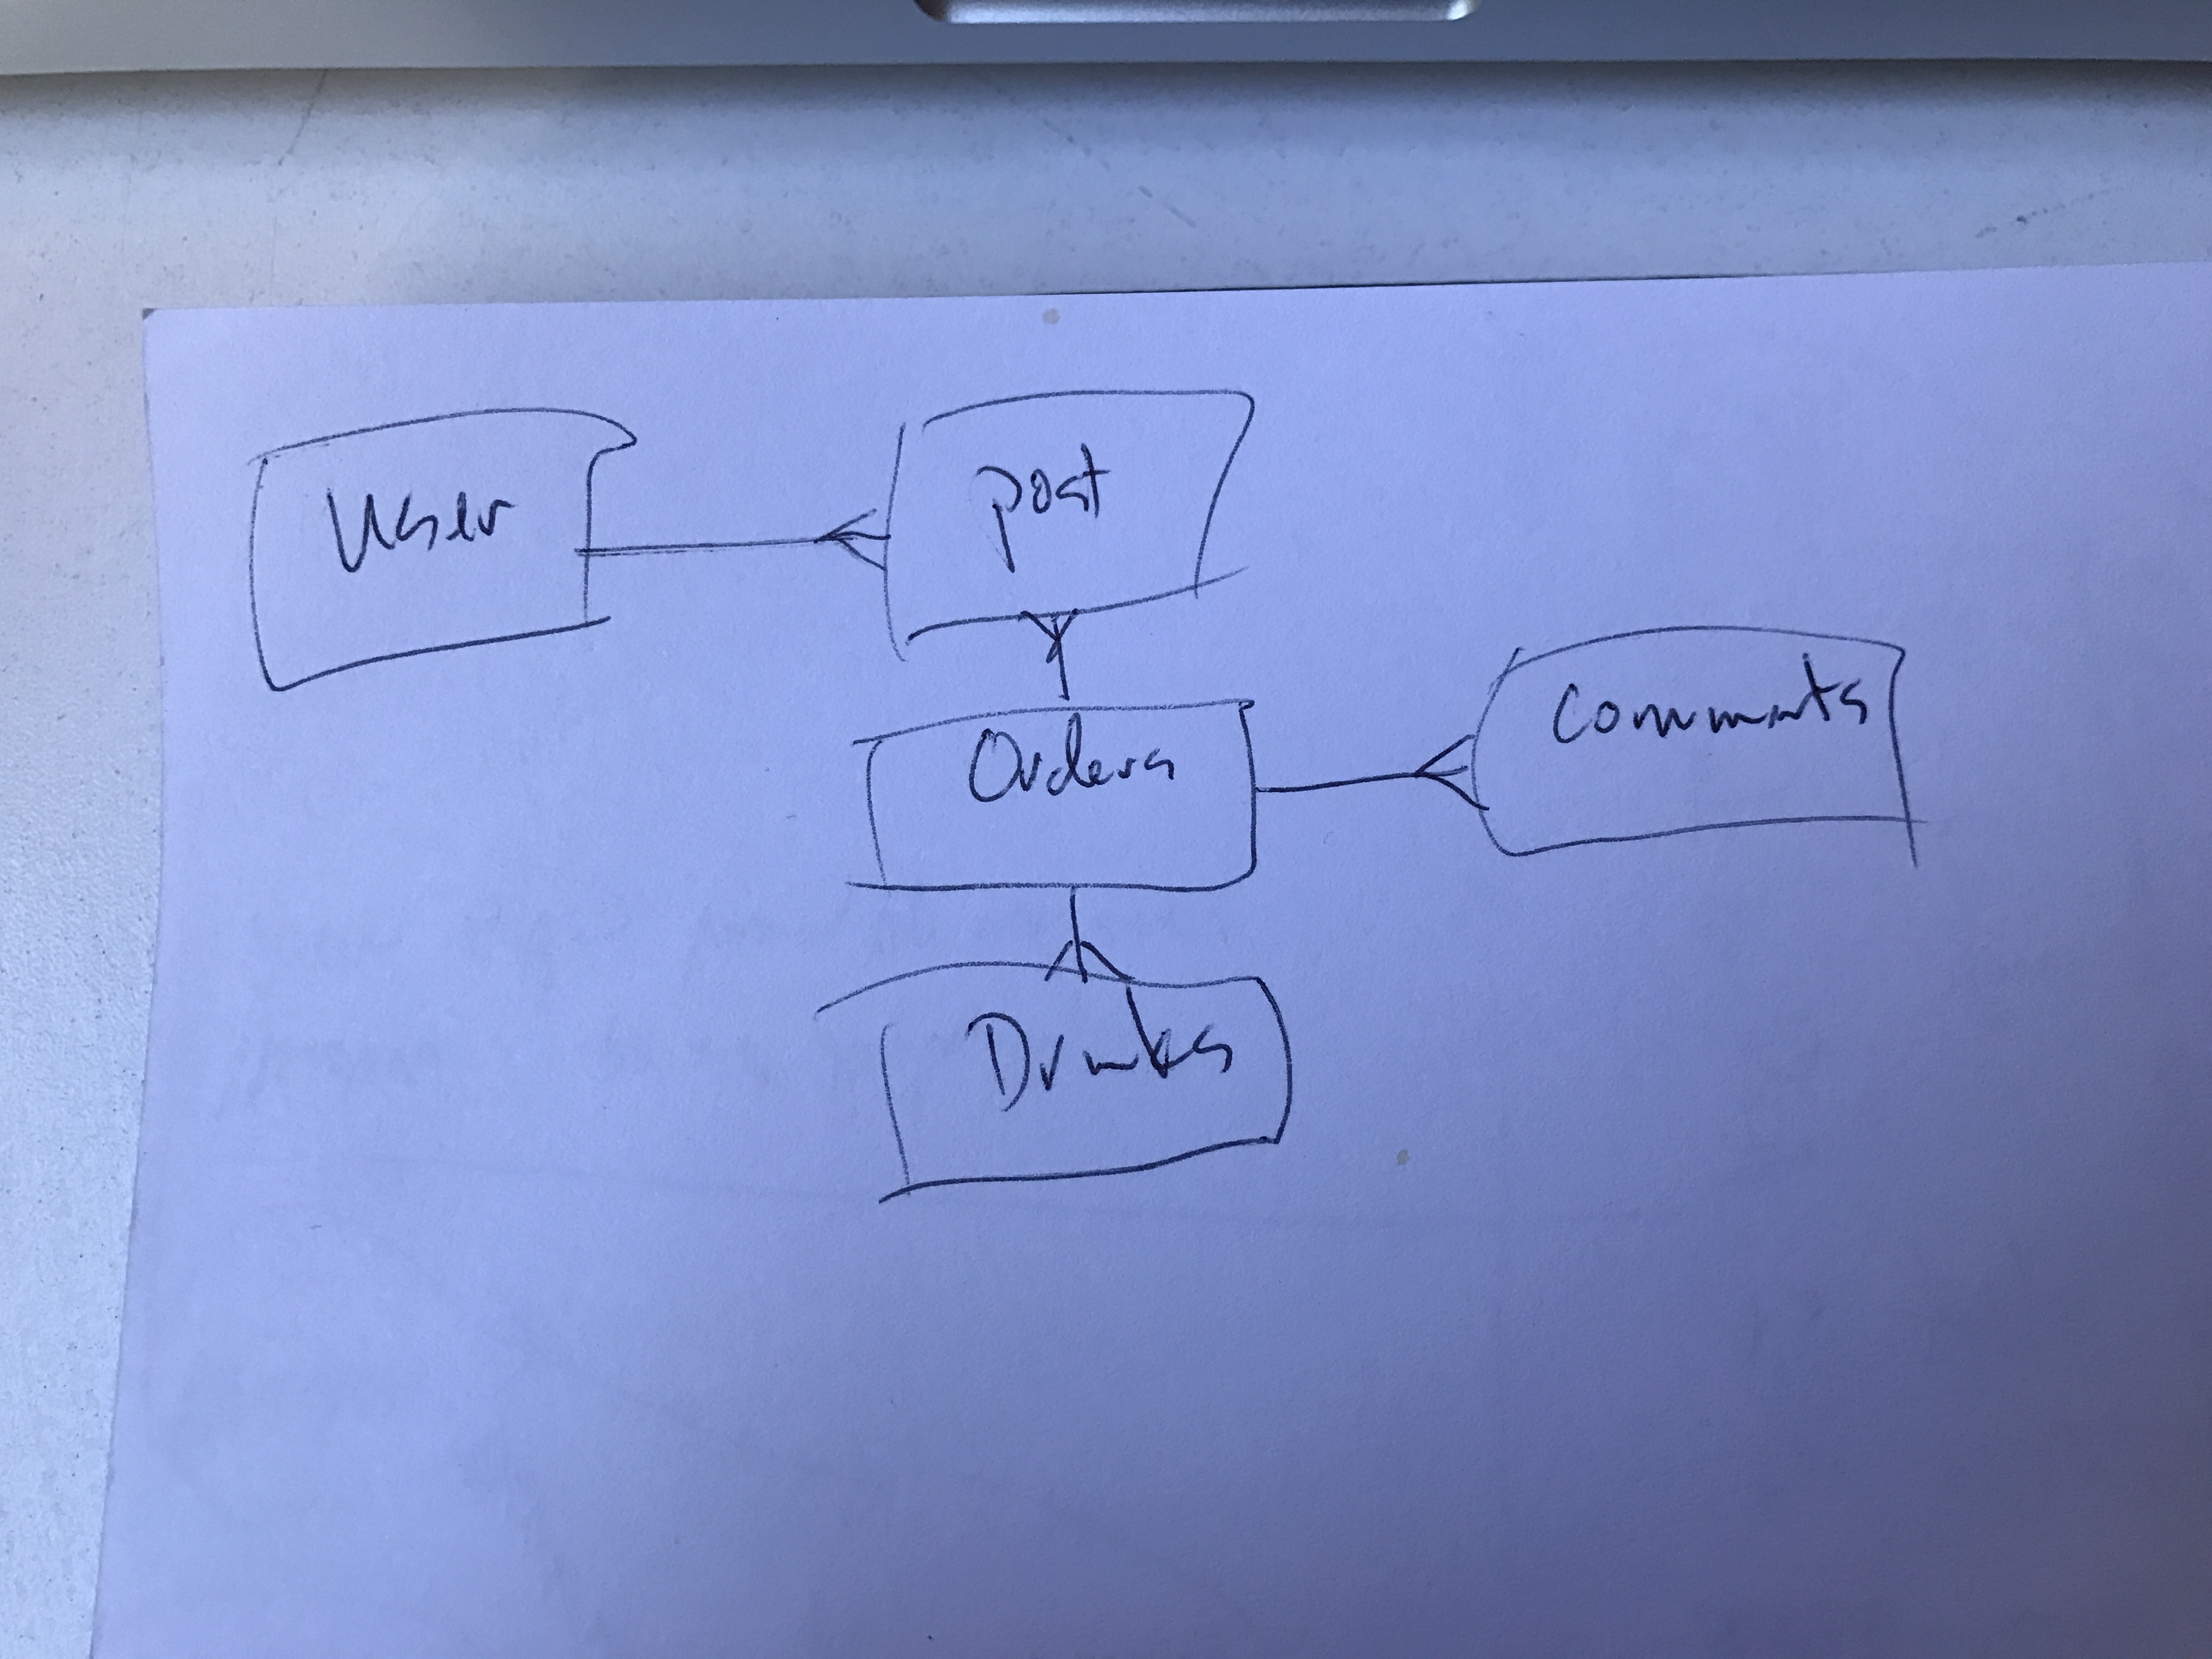 User
post
Orders
Comments
Drinks